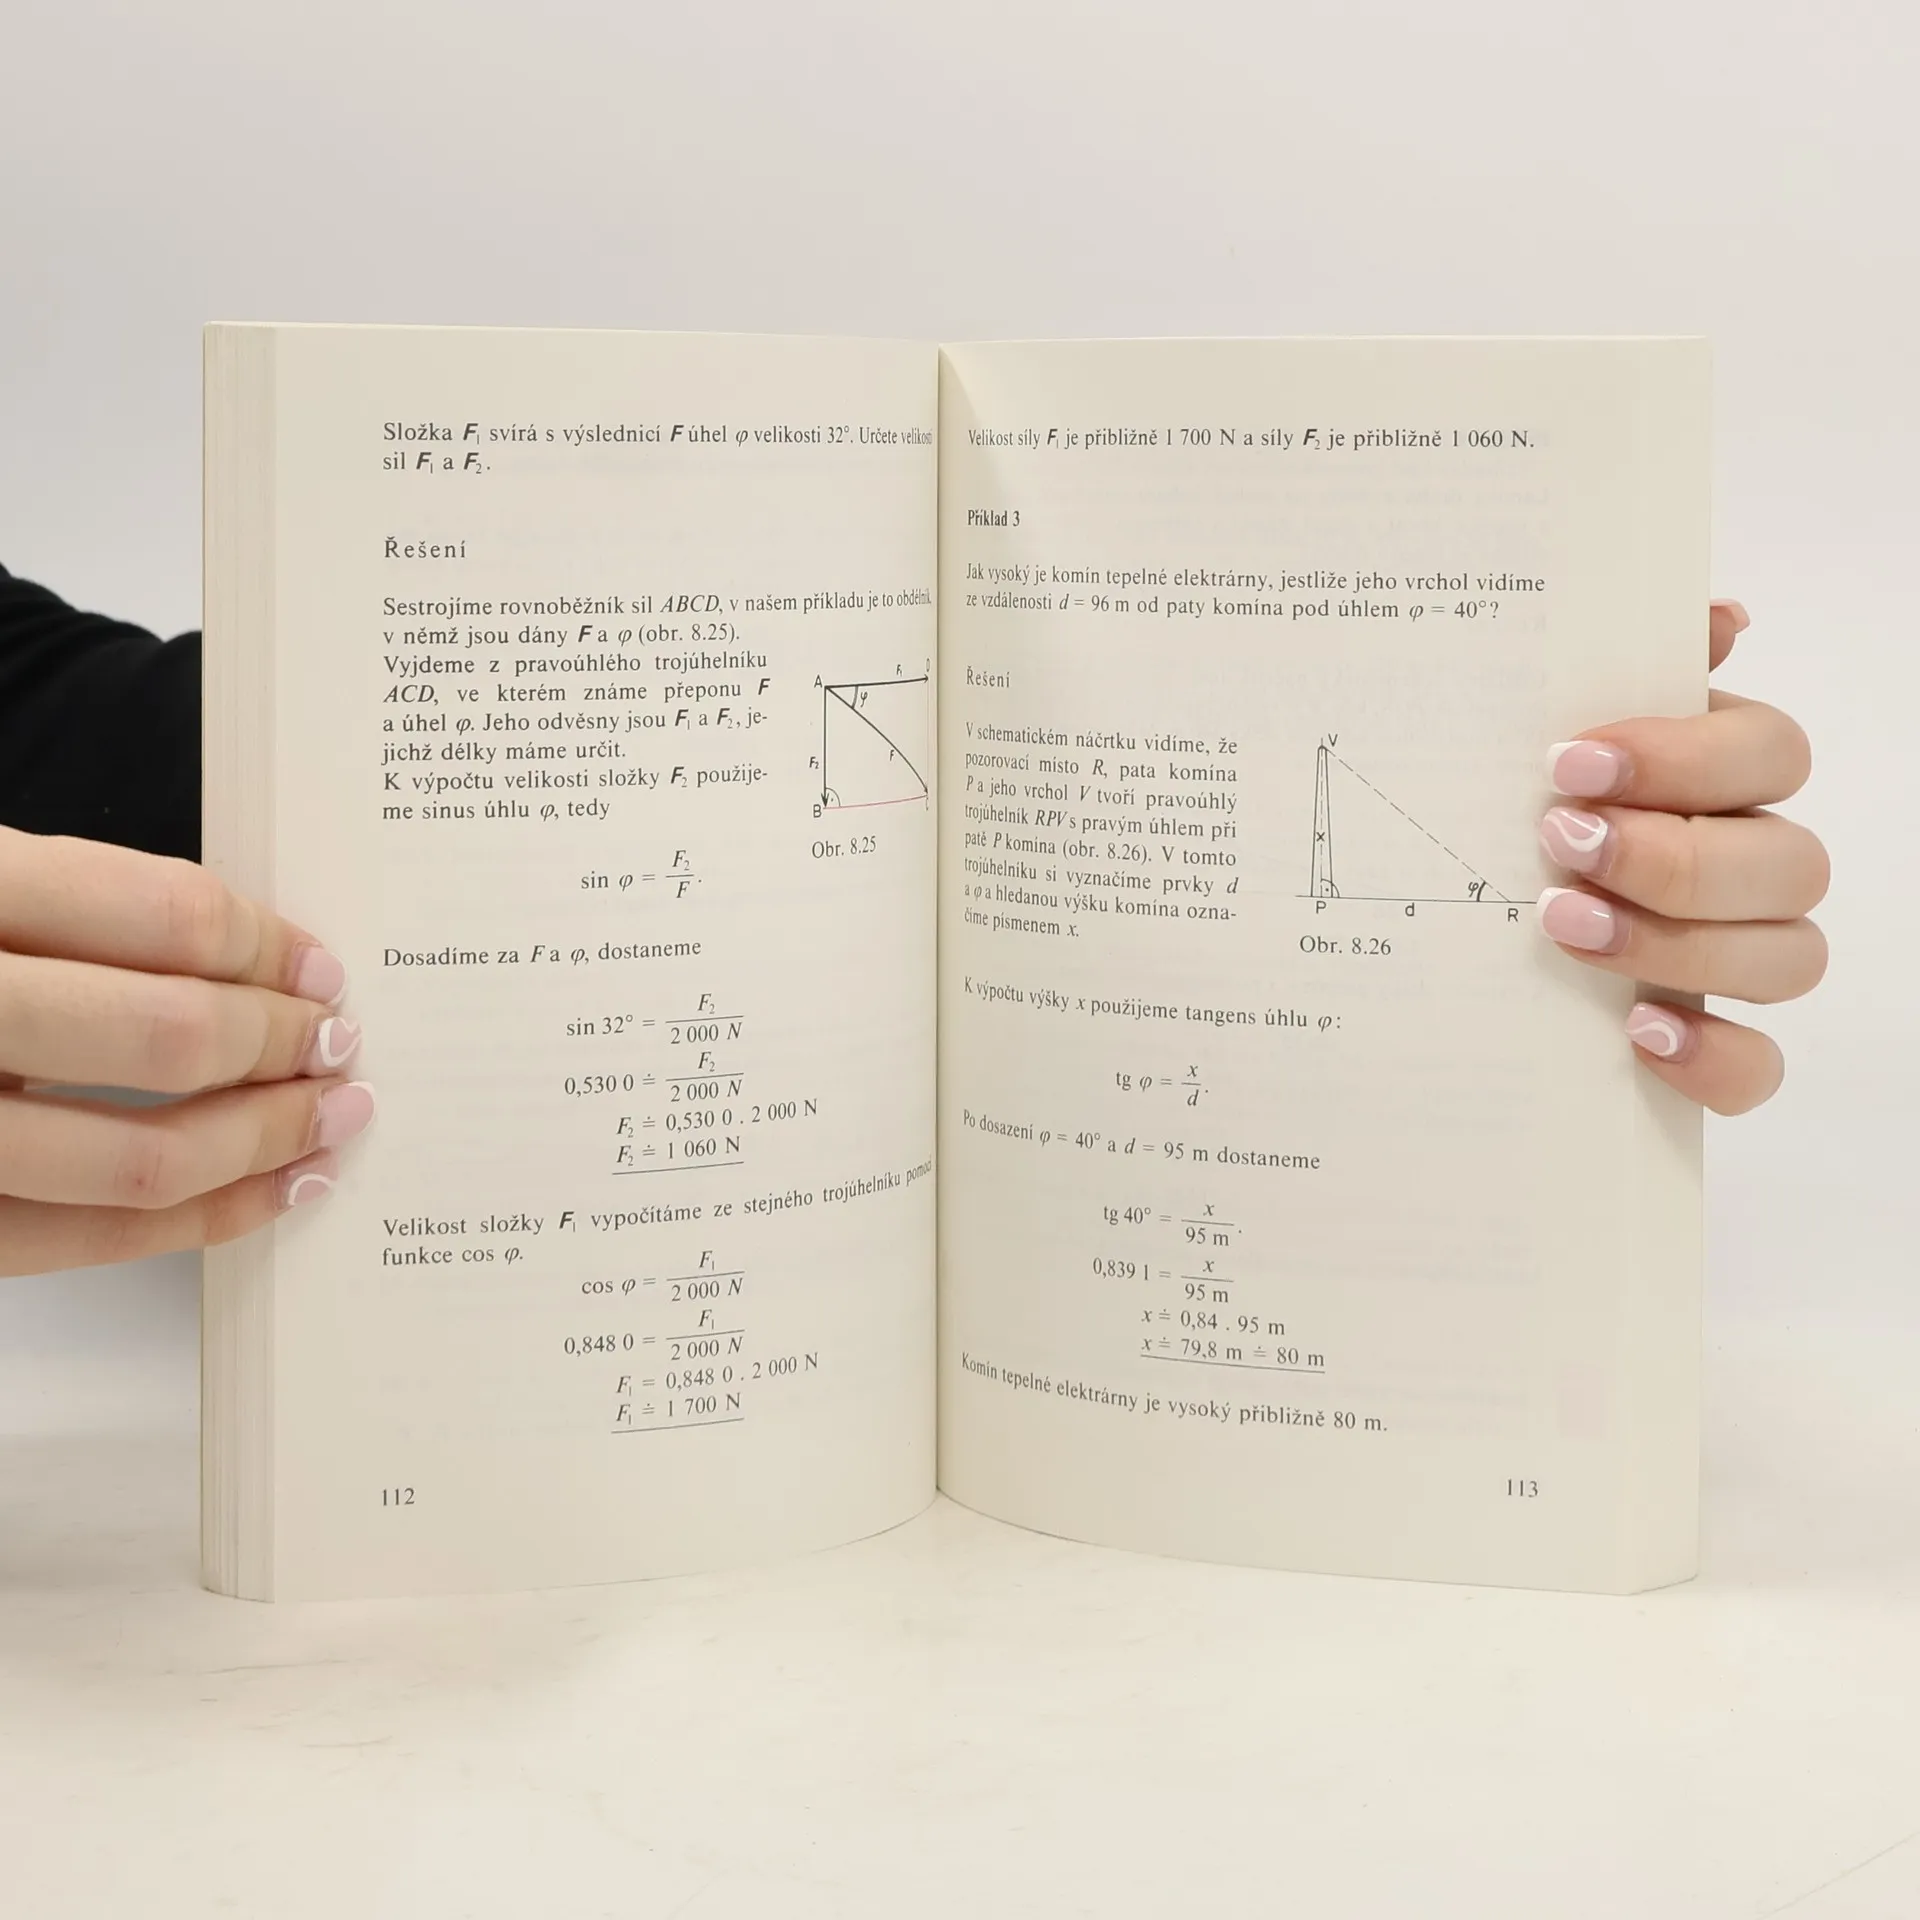 Složka F₁ svírá s výslednicí F úhel φ velikosti 32°. Určete velikosti
sil F₁ a F₂.
Řešení
Sestrojíme rovnoběžník sil ABCD, v našem příkladu je to obdélník,
v němž jsou dány F a φ (obr. 8.25).
Vyjdeme z pravoúhlého trojúhelníku
ACD, ve kterém známe přeponu F
a úhel φ. Jeho odvěsny jsou F₁ a F₂, je-
jichž délky máme určit.
K výpočtu velikosti složky F₂ použije-
me sinus úhlu φ, tedy
A
F₁
D
φ
F₂
F
B
C
Obr. 8.25
sin φ = F₂/F.
Dosadíme za F a φ, dostaneme
sin 32° = F₂/2 000 N
0,530 0 ≐ F₂/2 000 N
F₂ ≐ 0,530 0 . 2 000 N
F₂ ≐ 1 060 N
Velikost složky F₁ vypočítáme ze stejného trojúhelníku pomocí
funkce cos φ.
cos φ = F₁/2 000 N
0,848 0 = F₁/2 000 N
F₁ = 0,848 0 . 2 000 N
F₁ ≐ 1 700 N
112
Velikost síly F₁ je přibližně 1 700 N a síly F₂ je přibližně 1 060 N.
Příklad 3
Jak vysoký je komín tepelné elektrárny, jestliže jeho vrchol vidíme
ze vzdálenosti d = 96 m od paty komína pod úhlem φ = 40°?
Řešení
V schematickém náčrtku vidíme, že
pozorovací místo R, pata komína
P a jeho vrchol V tvoří pravoúhlý
trojúhelník RPV s pravým úhlem při
patě P komína (obr. 8.26). V tomto
trojúhelníku si vyznačíme prvky d
a φ a hledanou výšku komína ozna-
číme písmenem x.
V
x
φ
P
d
R
Obr. 8.26
K výpočtu výšky x použijeme tangens úhlu φ:
tg φ = x/d.
Po dosazení φ = 40° a d = 95 m dostaneme
tg 40° = x/95 m.
0,839 1 = x/95 m
x ≐ 0,84 . 95 m
x ≐ 79,8 m ≐ 80 m
Komín tepelné elektrárny je vysoký přibližně 80 m.
113